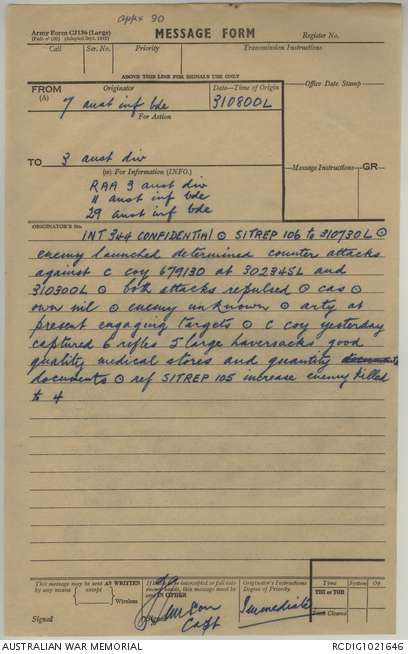 appx 90
Army Form C2136 (Large)
MESSAGE FORM
Register No.
Call
Ser. No.
Priority
Transmission Instructions
ABOVE THIS LINE FOR SIGNALS USE ONLY
FROM
(A)
Originator
Date—Time of Origin
Office Date Stamp
7 aust inf bde
310800L
For Action
TO
3 aust div
(W) For Information (INFO.)
Message Instructions
GR
RAA 3 aust div
11 aust inf bde
29 aust inf bde
ORIGINATOR'S No.
INT 344 CONFIDENTIAL ⊙ SITREP 106 to 310730L ⊙
enemy launched determined counter attacks
against C coy 679130 at 302345L and
310300L ⊙ both attacks repulsed ⊙ cas ⊙
own nil ⊙ enemy unknown ⊙ arty at
present engaging targets ⊙ C coy yesterday
captured 6 rifles 5 large haversacks good
quality medical stores and quantity
documents ⊙ ref SITREP 105 increase enemy killed
to 4
This message may be sent AS WRITTEN
by any means
except
Wireless
If liable to be intercepted or fall into
enemy hands, this message must be
sent IN CIPHER
Originator's Instructions
Degree of Priority
Time
System
Op
THI or TOR
Time Cleared
Immediate
Signed
Signed
Capt
AUSTRALIAN WAR MEMORIAL
RCDIG1021646